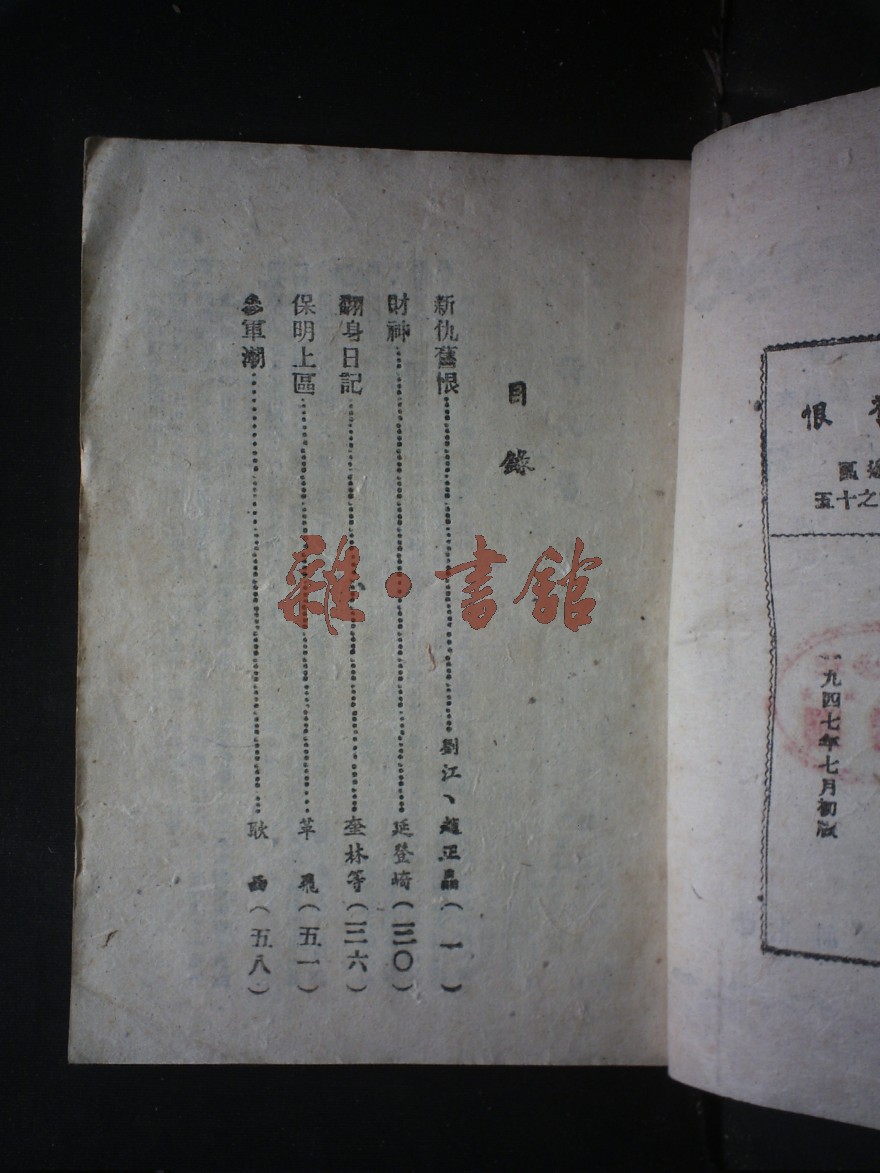 恨
區
之十五
一九四七年七月初版
目錄
新仇舊恨……劉江、趙正晶(一)
財神……延登崎(三〇)
翻身日記……奎林等(三六)
保明上區……革飛(五一)
參軍潮……耿西(五八)
雜·書館